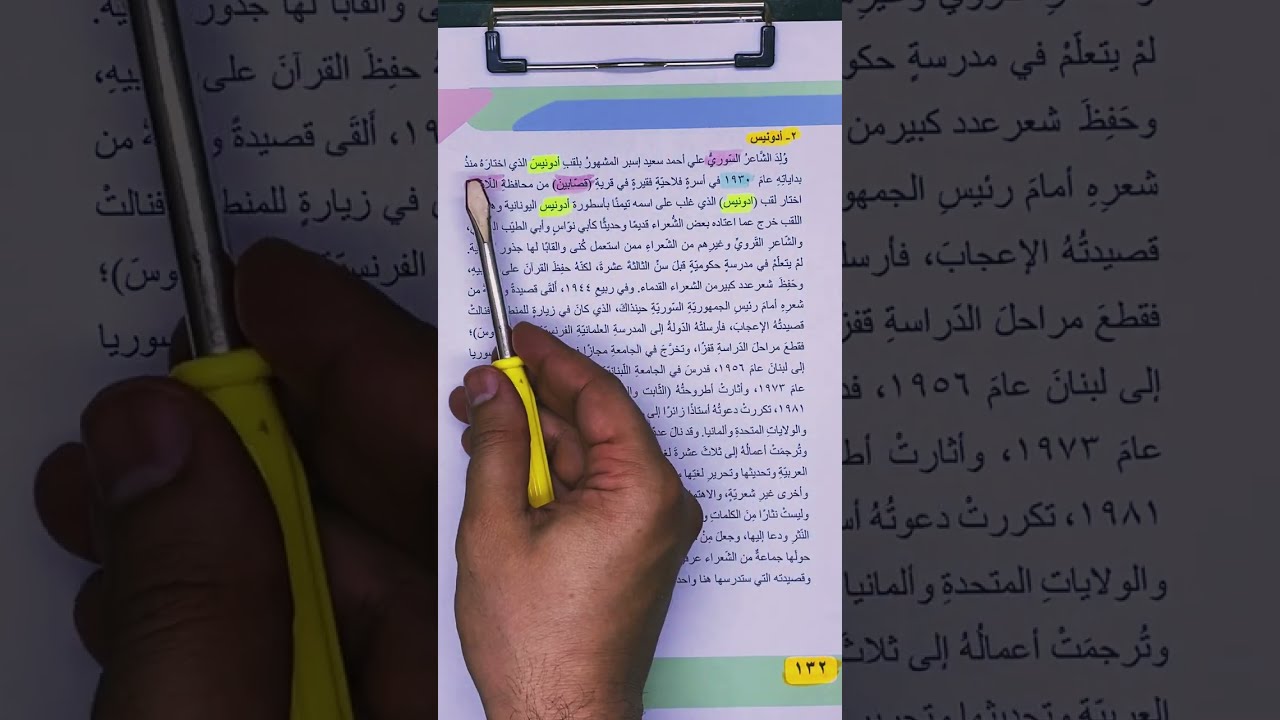 ٢- أدونيس
وُلِدَ الشَّاعرُ السّوريُّ علي أحمد سعيد إسبر المشهورُ بلقبِ أدونيسَ الذي اختارَهُ منذُ
بداياتِهِ عامَ ١٩٣٠ في أسرةٍ فلاحيّةٍ فقيرةٍ في قريةِ (قصّابينَ) من محافظةِ
اختار لقب (ادونيس) الذي غلب على اسمه تيمنًا بأسطورة أدونيس اليونانية
اللقب خرج عما اعتاده بعض الشُّعراء قديمًا وحديثًا كأبي نوّاسٍ وأبي الطيّب
والشّاعرِ القَرويِّ وغيرِهم من الشّعراءِ ممن استعمل كُنى والقابًا لها جذور
لمْ يتعلّمْ في مدرسةٍ حكوميّةٍ قبلَ سنِّ الثالثةَ عشرةَ، لكنّهُ حفِظَ القرآنَ على
وحَفِظَ شعر عدد كبيرمن الشعراء القدماء. وفي ربيعِ ١٩٤٤، ألقَى قصيدةً من
شعرِهِ أمامَ رئيسِ الجمهوريّةِ السّوريّةِ حينذاكَ، الذي كانَ في زيارةٍ للمنطقةِ فنالتْ
قصيدتُهُ الإعجابَ، فأرسلتْهُ الدّولةُ إلى المدرسةِ العلمانيّةِ الفرنسيّةِ
فقطعَ مراحلَ الدّراسةِ قفزًا، وتخرَّجَ في الجامعةِ مجازًا سوريا
إلى لبنانَ عامَ ١٩٥٦، فدرسَ في الجامعةِ اللّبنانيّةِ
عامَ ١٩٧٣، وأثارتْ أطروحتُهُ (الثّابت
١٩٨١، تكررتْ دعوتُهُ أستاذًا زائرًا إلى
والولاياتِ المتحدةِ وألمانيا. وقد نالَ
وتُرجمَتْ أعمالُهُ إلى ثلاثَ عشرةَ
العربيّةِ وتحديثِها وتحريرِ لغتِها
وأخرى غيرِ شعريّةٍ،
وليستْ نثارًا مِنَ الكلماتِ
النّثرِ ودعا إليها، وجعلَ مِنْ
حولَها جماعةٌ من الشّعراء
وقصيدته التي ستدرسها هنا
١٣٢